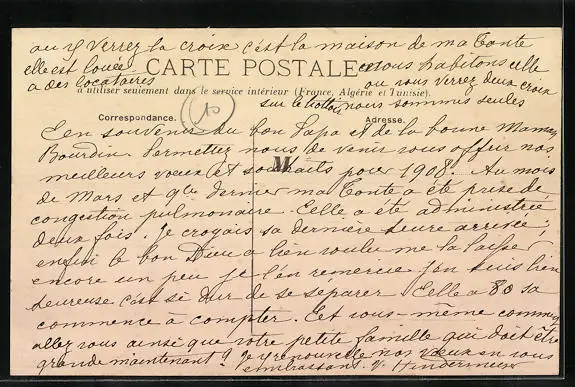 au 1er Verrez la croix c'est la maison de ma Tante
elle est louée
CARTE POSTALE
et nous habitons elle
a des locataires
ou vous verrez deux croix
à utiliser seulement dans le service intérieur (France, Algérie et Tunisie).
sur le trottoir nous sommes seules
Correspondance.
Adresse.
En souvenir du bon Papa et de la bonne Maman
Bourdin. Permettez nous de venir vous offrir nos
meilleurs vœux et souhaits pour 1908. Au mois
de Mars et dernier ma Tante a été prise de
congestion pulmonaire. Elle a été administrée
deux fois. Je croyais sa dernière heure arrivée,
enfin le bon Dieu a bien voulu me la laisser
encore un peu je l'en remercie j'en suis bien
heureuse c'est si dur de se séparer. Elle a 80 sa
commence à compter. Et vous-même comment
allez vous ainsi que votre petite famille qui doit être
grande maintenant? Je renouvelle nos vœux en vous
embrassant. V. Hindermeyer